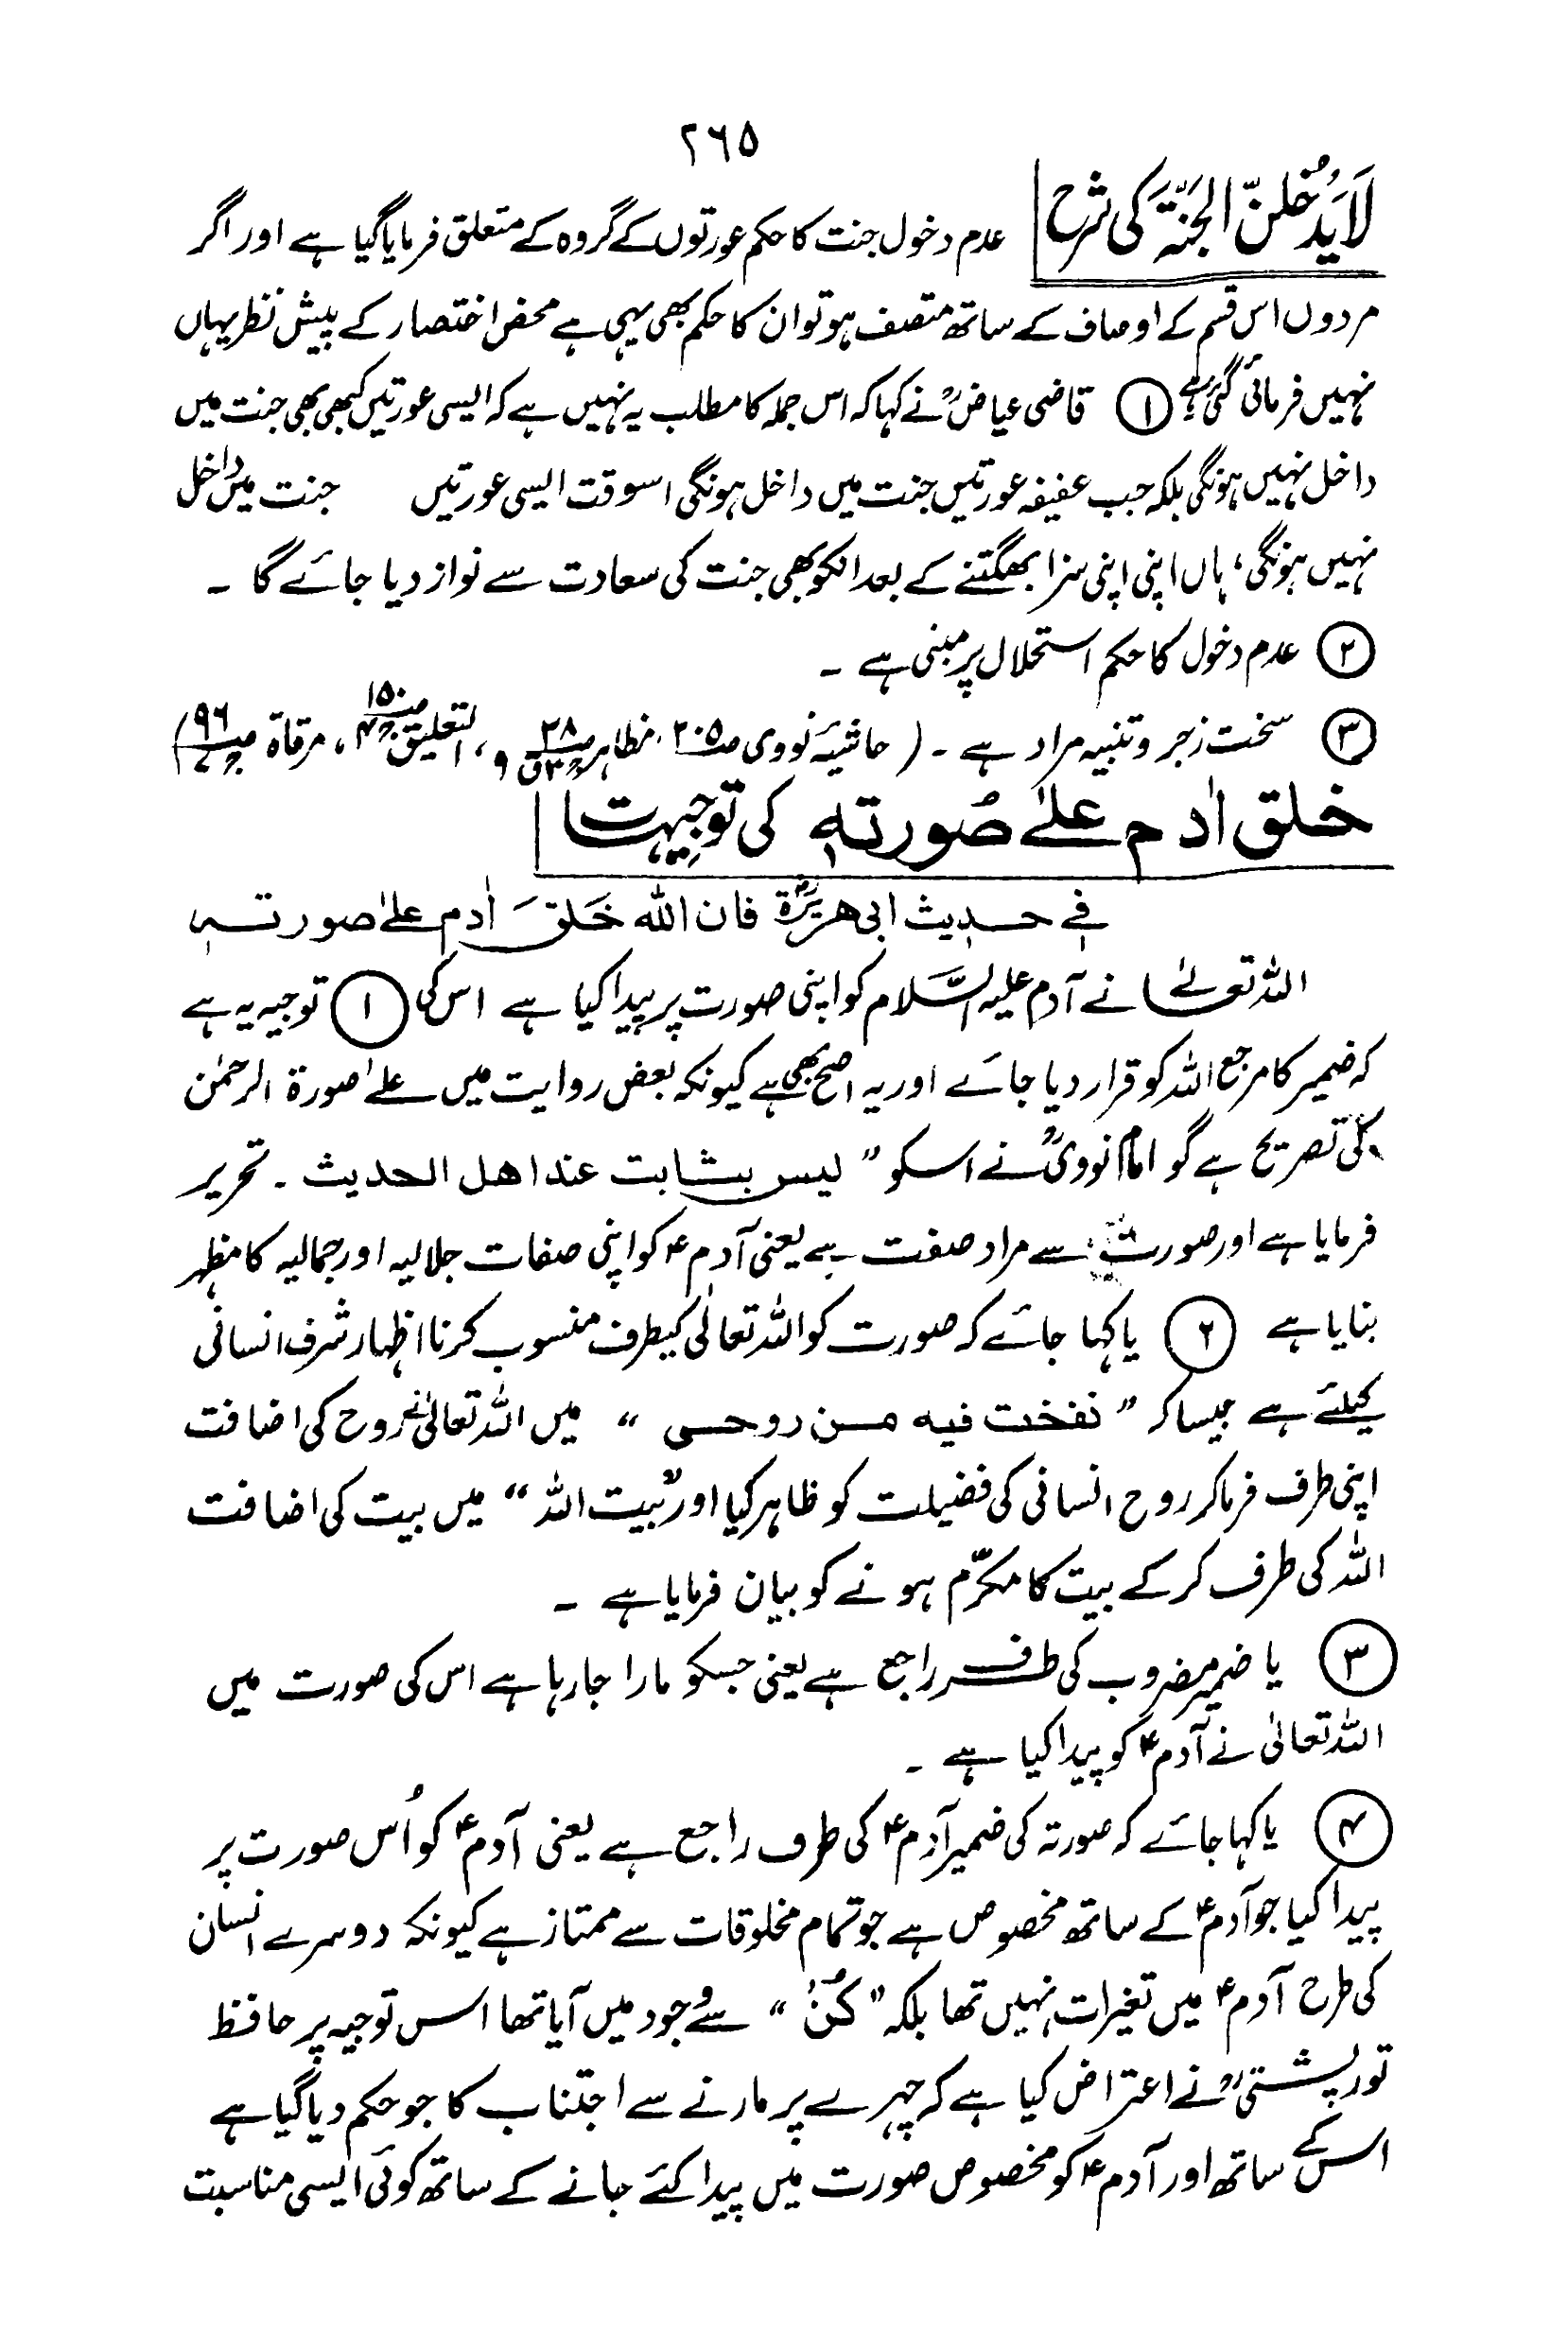 ۲۶۵
لَا یَدْخُلنّ الجنّۃَ کی شرح عدم دخول جنت کا حکم عورتوں کے گروہ کے متعلق فرمایا گیا ہے اور اگر
مردوں اس قسم کے اوصاف کے ساتھ متصف ہو تو ان کا حکم بھی یہی ہے محض اختصار کے پیش نظر یہاں
نہیں فرمائی گئی ہے ① قاضی عیاضؒ نے کہا کہ اس جملہ کا مطلب یہ نہیں ہے کہ ایسی عورتیں کبھی بھی جنت میں
داخل نہیں ہونگی بلکہ جب عفیفہ عورتیں جنت میں داخل ہونگی اسوقت ایسی عورتیں جنت میں داخل
نہیں ہونگی، ہاں اپنی اپنی سزا بھگتنے کے بعد انکو بھی جنت کی سعادت سے نواز دیا جائے گا ۔
② عدم دخول کا حکم استحلال پر مبنی ہے ۔
③ سخت زجر و تنبیہ مراد ہے ۔ ( حاشیۂ نووی صـ۲۰۵، مظاہر صـ۳۸، التعلیق صـ۱۵۰، مرقاۃ صـ۹۶)
خلق اٰدم علےٰ صُورتہٖ کی توجیہات
فی حدیث ابی ھریرۃؓ فان اللہ خَلَقَ اٰدم علےٰ صورتہٖ
اللہ تعالےٰ نے آدم علیہ السَّلام کو اپنی صورت پر پیدا کیا ہے اس کی ① توجیہ یہ ہے
کہ ضمیر کا مرجع اللہ کو قرار دیا جائے اور یہ اصح بھی ہے کیونکہ بعض روایت میں علےٰ صورۃ الرحمٰن
کی تصریح ہے گو امام نوویؒ نے اسکو ” لیس بثابت عند اھل الحدیث ۔ تحریر
فرمایا ہے اور صورت سے مراد صفت ہے یعنی آدم ؑ کو اپنی صفات جلالیہ اور جمالیہ کا مظہر
بنایا ہے ② یا کہا جائے کہ صورت کو اللہ تعالٰی کیطرف منسوب کرنا اظہار شرف انسانی
کیلئے ہے جیسا کہ ” نفخت فیہ من روحی “ میں اللہ تعالیٰ نے روح کی اضافت
اپنی طرف فرما کر روح انسانی کی فضیلت کو ظاہر کیا اور ”بیت اللہ “ میں بیت کی اضافت
اللہ کی طرف کر کے بیت کا مکرّم ہونے کو بیان فرمایا ہے ۔
③ یا ضمیر مضروب کی طرف راجع ہے یعنی جسکو مارا جا رہا ہے اس کی صورت میں
اللہ تعالیٰ نے آدم ؑ کو پیدا کیا ہے ۔
④ یا کہا جائے کہ صورتہ کی ضمیر آدم ؑ کی طرف راجع ہے یعنی آدم ؑ کو اُس صورت پر
پیدا کیا جو آدم ؑ کے ساتھ مخصوص ہے جو تمام مخلوقات سے ممتاز ہے کیونکہ دوسرے انسان
کی طرح آدم ؑ میں تغیرات نہیں تھا بلکہ ” کُنْ “ سے وُجود میں آیا تھا اس توجیہ پر حافظ
تورپشتیؒ نے اعتراض کیا ہے کہ چہرے پر مارنے سے اجتناب کا جو حکم دیا گیا ہے
اس کے ساتھ اور آدم ؑ کو مخصوص صورت میں پیدا کئے جانے کے ساتھ کوئی ایسی مناسبت